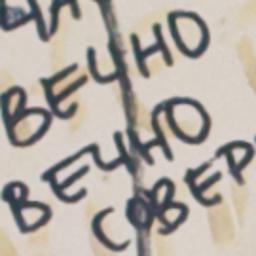 ВЕЧНО
ВЕЧНО
СОВЕР